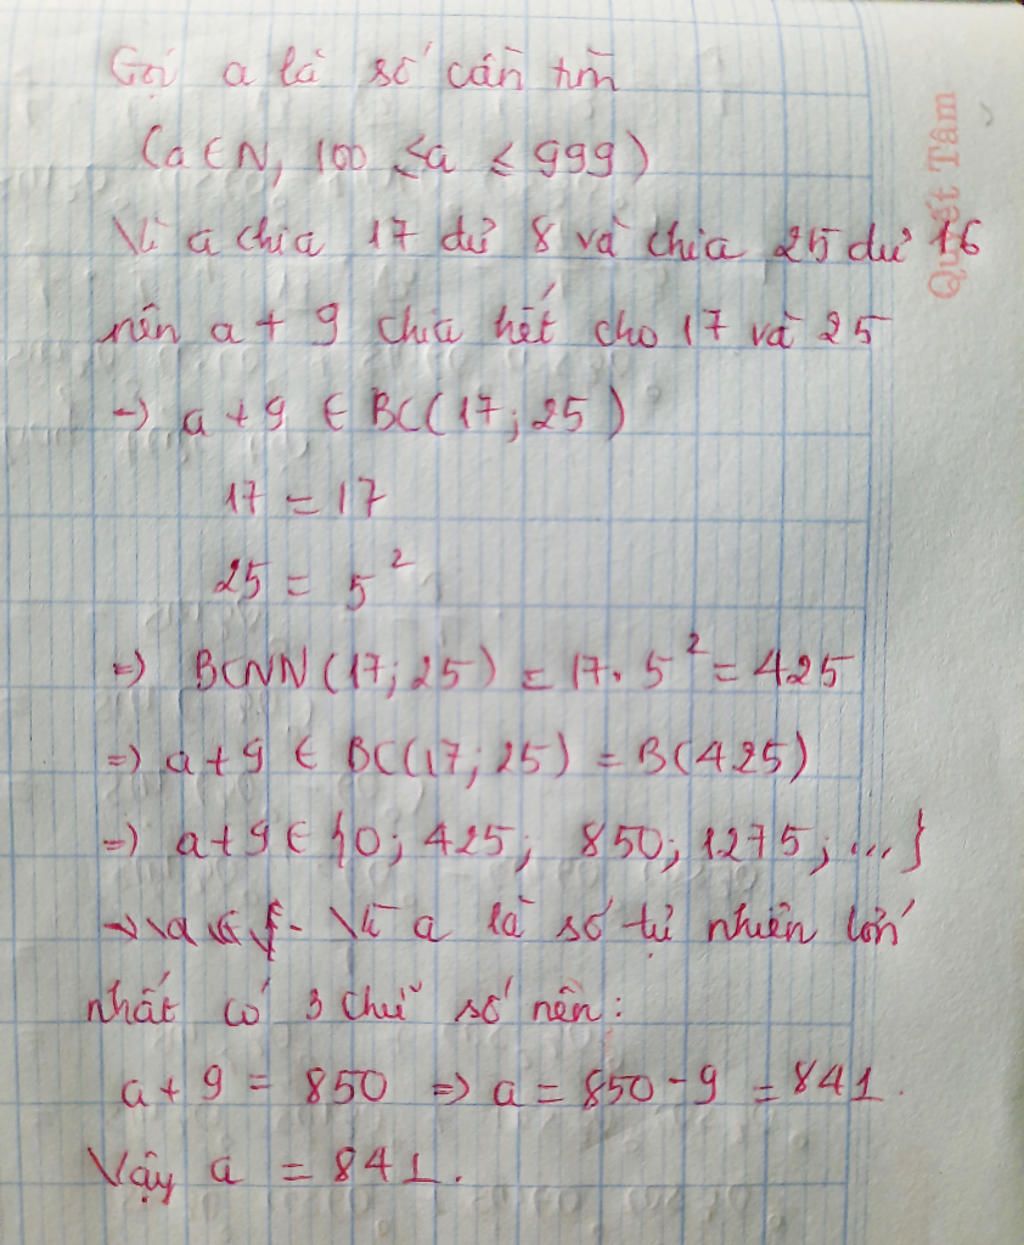 Gọi a là số cần tìm
(a ∈ N, 100 ≤ a ≤ 999)
Vì a chia 17 dư 8 và chia 25 dư 16
nên a + 9 chia hết cho 17 và 25
→ a + 9 ∈ BC(17; 25)
17 = 17
25 = 5²
=> BCNN (17; 25) = 17. 5² = 425
=> a + 9 ∈ BC(17; 25) = B(425)
=> a + 9 ∈ {0; 425; 850; 1275; ...}
Vì a là số tự nhiên lớn
nhất có 3 chữ số nên:
a + 9 = 850 => a = 850 - 9 = 841.
Vậy a = 841.
Quyết Tâm